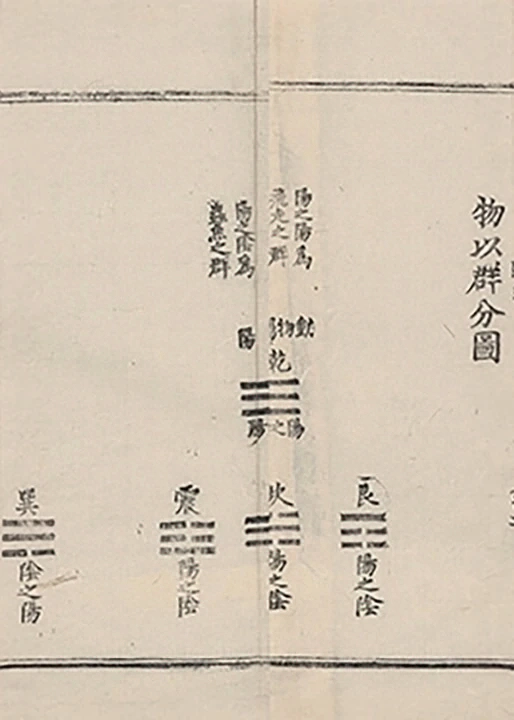 物以群分圖
陽之陽爲
飛走之群
陽之陰爲
蟲魚之群
動物 陽
乾
陽之陽
艮
陽之陰
陽之陰
震
陽之陰
巽
陰之陽